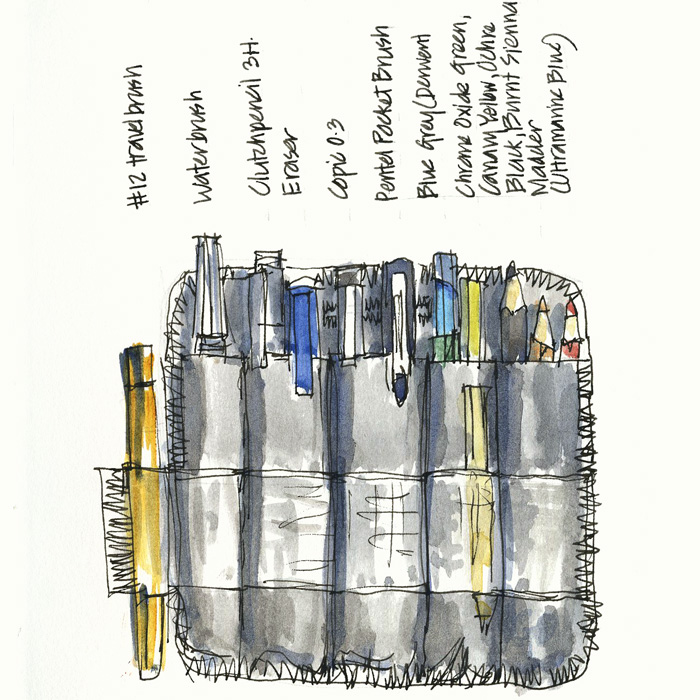 #12 travel brush
Waterbrush
Clutchpencil 3H.
Eraser
Copic 0.3
Pentel Pocket Brush
Blue Grey (Derwent
Chrome Oxide Green,
Canary Yellow, Ochre
Black, Burnt Sienna
Madder
(Ultramarine Blue)